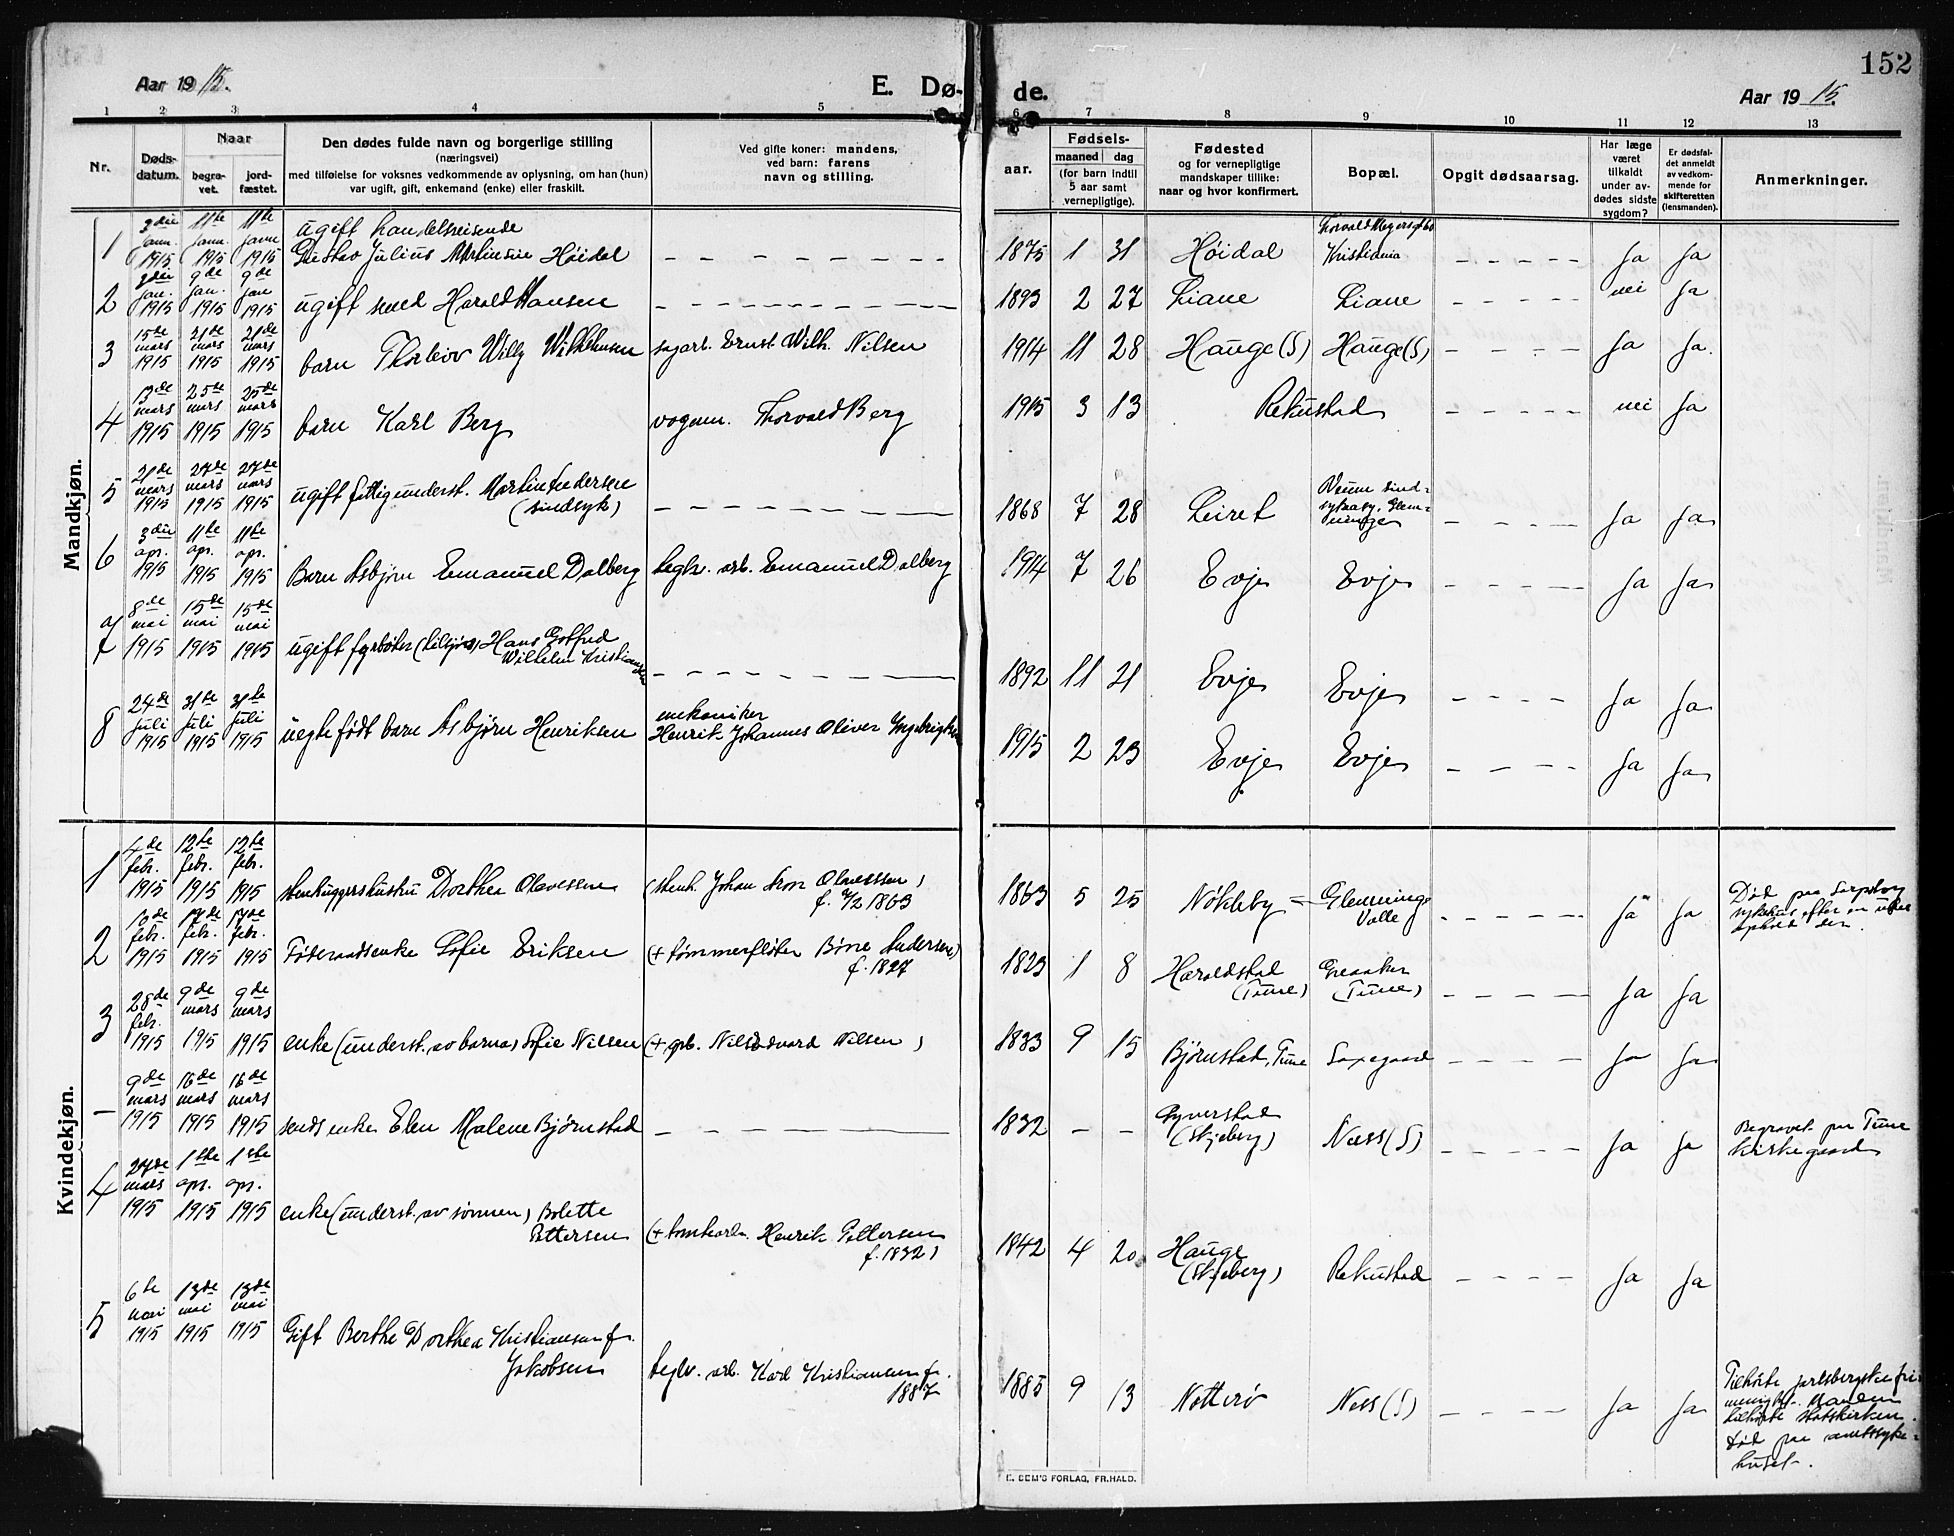 152
Aar 1915.
E. Dø-
de.
Aar 1915.
1 2 3 4 5 6 7 8 9 10 11 12 13
Nr.
Døds-
datum.
Naar
begra-
vet.
jord-
fæstet.
Den dødes fulde navn og borgerlige stilling
(næringsvei)
med tilføielse for voksnes vedkommende av oplysning, om han (hun)
var ugift, gift, enkemand (enke) eller fraskilt.
Ved gifte koner: mandens,
ved barn: farens
navn og stilling.
Fødsels-
aar.
maaned dag
(for barn indtil
5 aar samt
vernepligtige).
Fødested
og for vernepligtige
mandskaper tillike:
naar og hvor konfirmert.
Bopæl.
Opgit dødsaarsag.
Har læge
været
tilkaldt
under av-
dødes sidste
sygdom?
Er dødsfal-
det anmeldt
av vedkom-
mende for
skifteretten
(lensmanden).
Anmerkninger.
Mandkjøn.
1 jann. 1915 11te jann. 1915 11te jann 1915 ugift handelsreisende
Gustav Julius Martinsen Høidal – – – – 1875 1 31 Høidal Kristiania – – – – Ja Ja
2 jan. 1915 9de jan. 1915 9de jan 1915 ugift Harald Hansen – – – – 1893 2 27 Liane Liane – – – – nei Ja
3 15de mars 1915 21de mars 1915 21de mars 1915 barn Thorleiv Willy sagarb. Ernst Wilh. Nilsen 1914 11 28 Hauge (S) Hauge (S) – – – – Ja Ja.
4 13de mars 1915 25de mars 1915 25de mars 1915 barn Karl Berg vognm. Thorvald Berg 1915 3 13 Rekustad – – – – nei Ja
5 21de mars 1915 27de mars 1915 27de mars 1915 ugift fattigunderst. Martin Andersen
(sindsyk) – – – – 1868 7 28 Leiret Veum sind=
sykeasy. Glem=
minge – – – – Ja Ja
6 3die apr. 1915 11te apr. 1915 11te apr. 1915 Barn Asbjørn Emanuel Dalberg teglv. arb. Emanuel Dalberg 1914 7 26 Evje Evje – – – – Ja Ja
7 8de mai 1915 15de mai 1915 15de mai 1915 ugift fyrbøter Hans Gotfred
Wilhelm Kristiansen – – – – 1892 11 21 Evje Evje – – – – Ja Ja
8 24de juli 1915 31te juli 1915 31te juli 1915 uegte født barn Asbjørn Henriksen mekaniker
Henrik Johannes Oliver Ingebrigtsen 1915 2 23 Evje Evje – – – – Ja Ja
Kvindekjøn.
1 4de febr. 1915 12te febr. 1915 12te febr. 1915 stenhuggershustru Dorthea Olavessen (stenh. Johan Aron Olavessen)
f. 1863 1863 5 25 Nøkleby = Glemminge
Valle – – – – Ja Ja Død paa Sarpsborg
sykehus efter en ukes
ophold der.
2 10de febr. 1915 17de febr. 1915 17de febr. 1915 Føderaadsenke Sofie Eriksen (+ tømmerfløter Børre Andersen)
f. 1827 1823 1 8 Haraldstad
(Tune) Greaaker
(Tune) – – – – Ja Ja
3 28de febr. 1915 9de mars 1915 9de mars 1915 enke (underst. av barna) Sofie Nilsen (+ grb. Nils Edvard Nilsen) 1833 9 15 Bjørnstad, Tune Saxegaard – – – – Ja Ja
– 9de mars 1915 16de mars 1915 16de mars 1915 enke Elen Malene Bjørnstad – – – – 1832 – – (Skjeberg) Næss (S) – – – – Ja Ja Begravet paa Tune
kirkegaard
4 27de mars 1915 1ste apr. 1915 1ste apr. 1915 enke (underst. av sønnen) Bolette
Pettersen (+ Henrik Pettersen
f. 1832) 1842 4 20 Hauge
(Skjeberg) Rekustad – – – – Ja Ja
5 6te mai 1915 13de mai 1915 13de mai 1915 Gift Berthe Dorthea Kristiansen f.
Jakobsen teglv. arb. Karl Kristiansen f.
1887 1885 9 13 Nøtterø Næss (S) – – – – Ja Ja Tilhørte jarlsbergske fri
menighet. Manden
tilhørte statskirken.
Død paa amtssyke=
huset.
E. SEM'S FORLAG, FR.HALD.